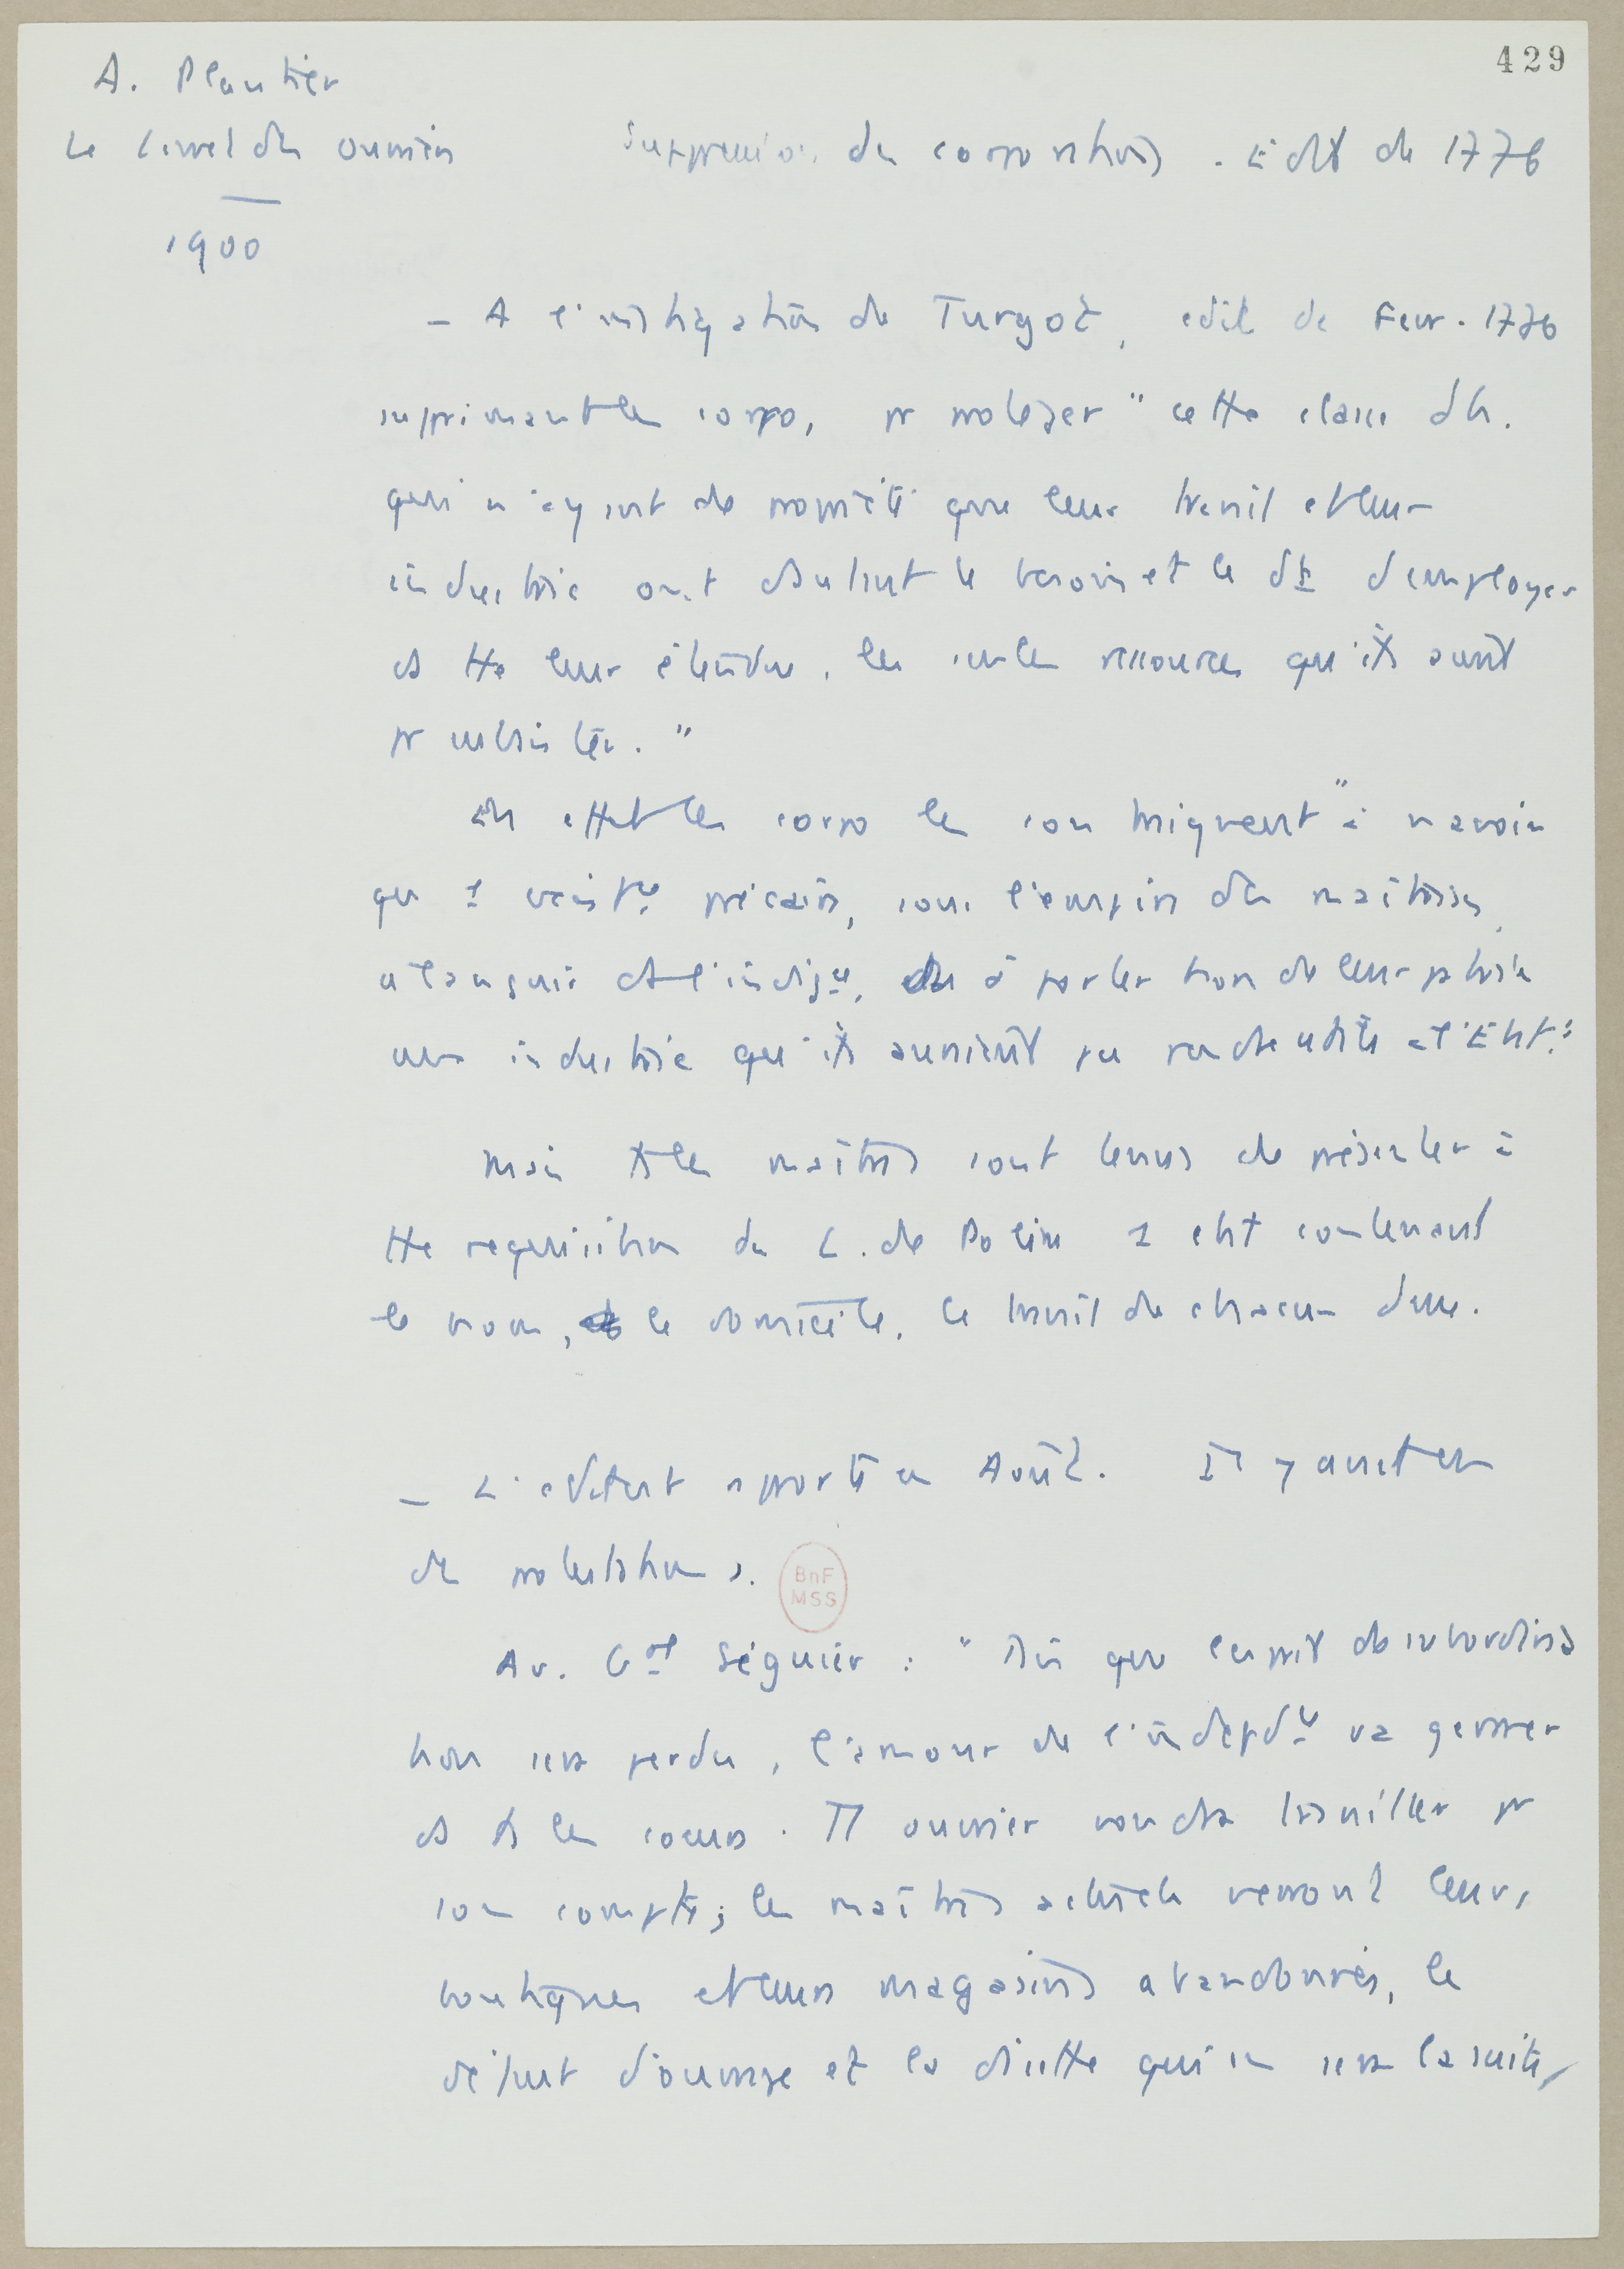 429
A. Plantier
Le livret des ouvriers
Suppression des corporations. L'édit de 1776
1900
- A l'instigation de Turgot, édit de Fevr. 1776
supprimant les corpo, pr protéger "cette classe d'h.
qui n'ayant de propriété que leur travail et leur
industrie ont d'autant le besoin et le dt d'employer
ds tte leur étendue, les seules ressources qu'ils aient
pr subsister."
En effet les corpo les contraignent "à n'avoir
qu'1 précaire, sous l'empire des maîtrises,
à languir ds l'indigce, ou à porter hors de leur patrie
une industrie qu'ils auraient pu rendre utile à l'Etat."
Mais ts les maîtres sont tenus de présenter à
tte requisition du L. de Police 1 état contenant
le nom, le domicile, le travail de chacun d'eux.
- L'édit est rapporté en Août. Il y avait eu
des protestations.
BnF
MSS
Av. Gal Séguier : "Dès que l'esprit de subordina
tion sera perdu, l'amour de l'indépdce va germer
ds ts les coeurs. Tt ouvrier voudra travailler pr
son compte ; les maîtres actuels verront leurs
boutiques et leurs magasins abandonnés, le
défaut d'ouvrage et la disette qui en sera la suite,